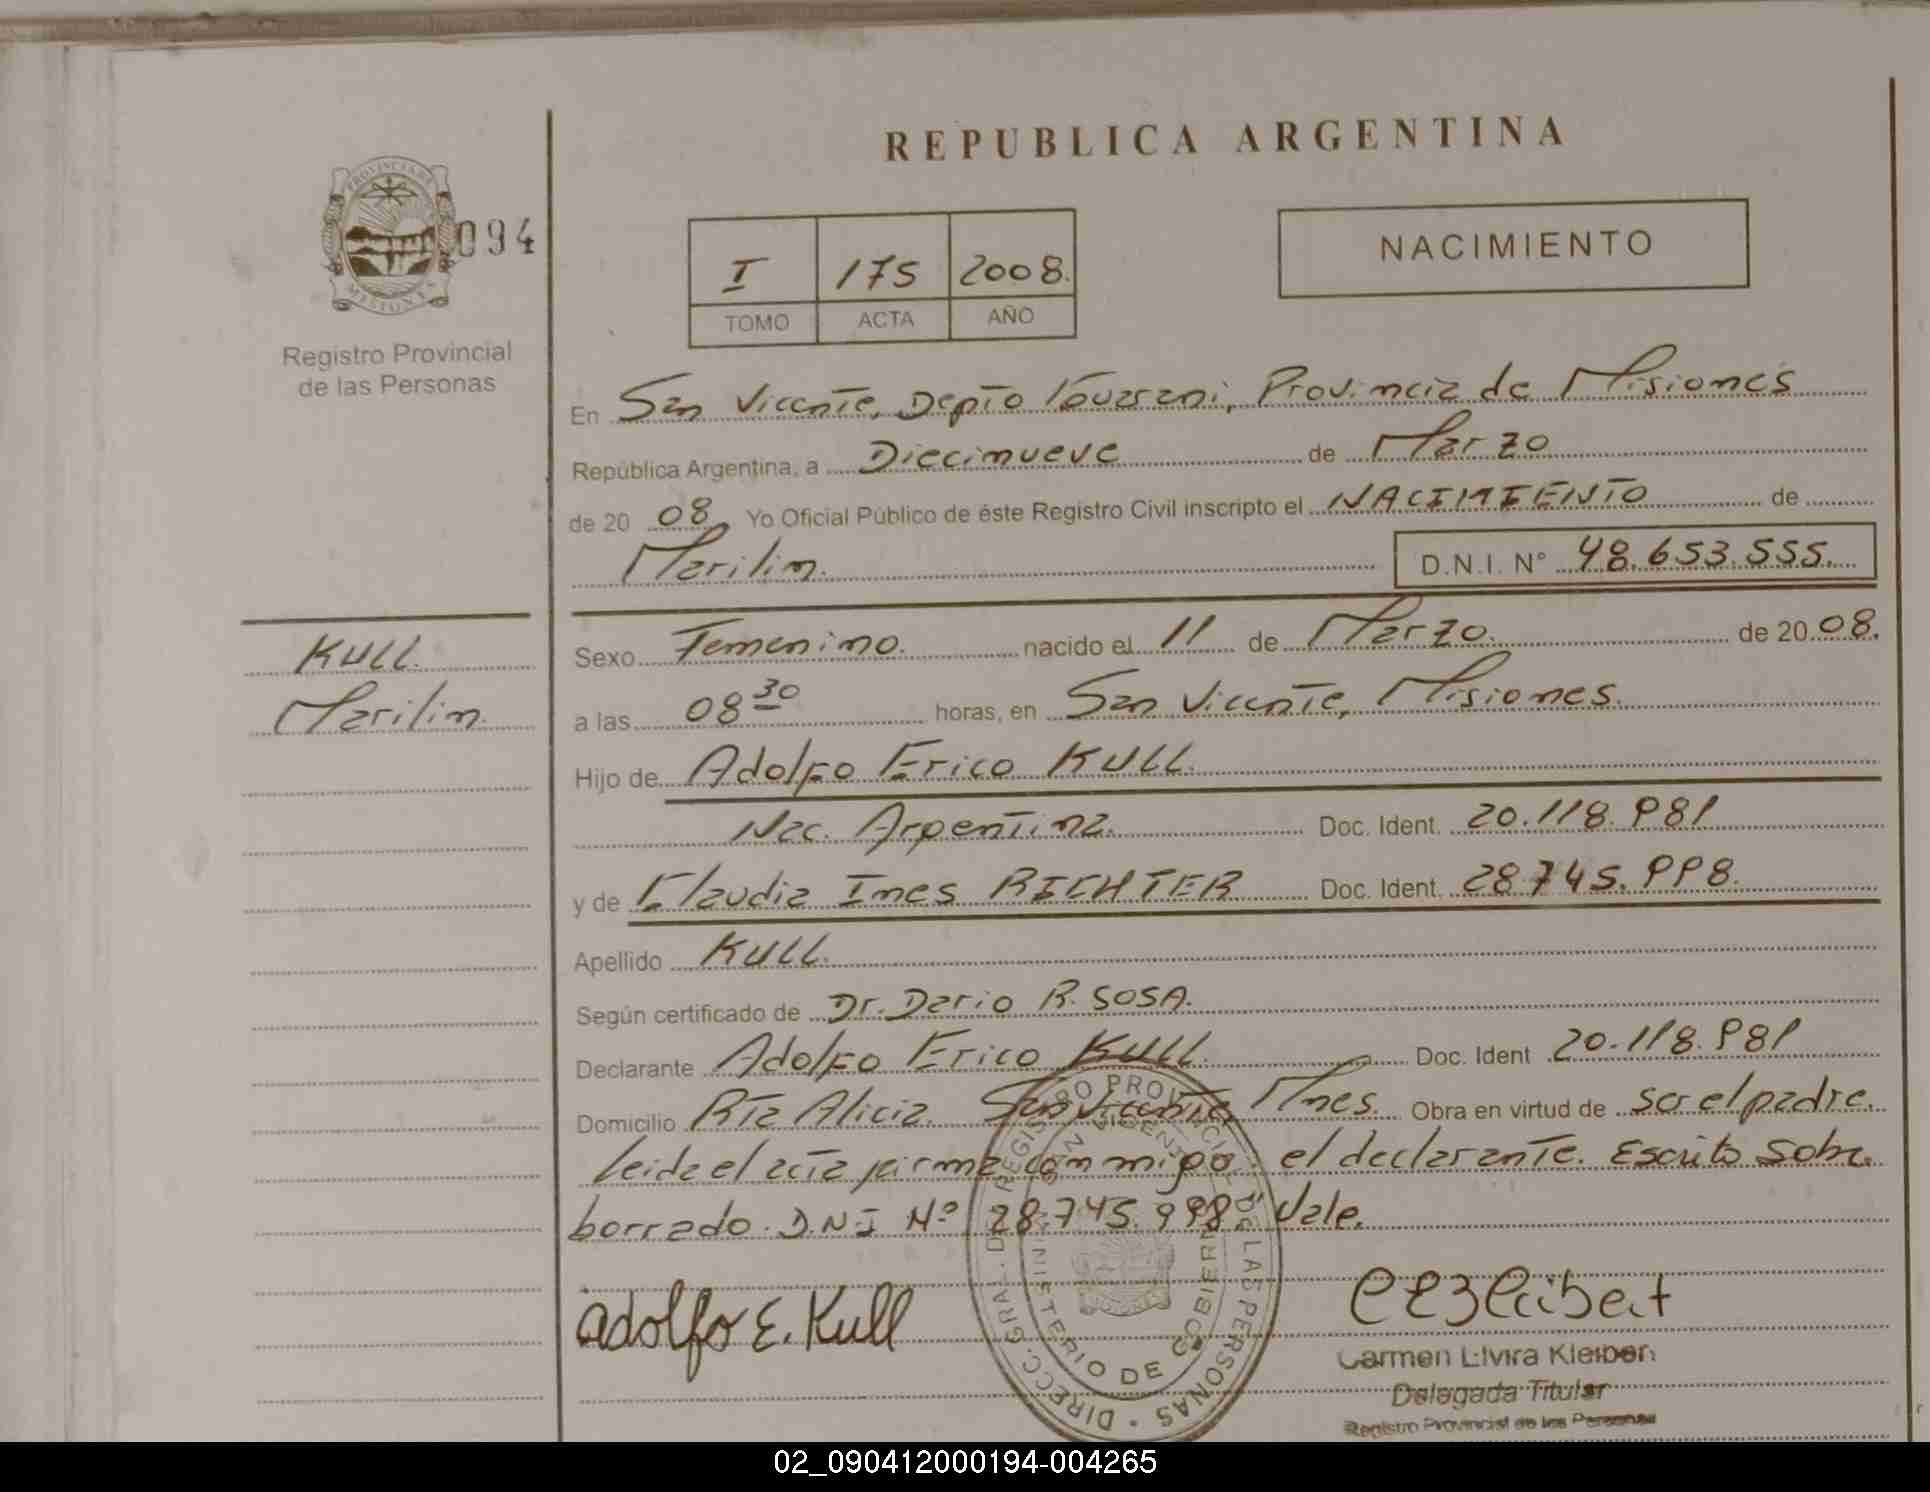 REPUBLICA ARGENTINA
PROVINCIA DE
MISIONES
094
Registro Provincial
de las Personas
I 175 2008.
TOMO ACTA AÑO
NACIMIENTO
En San Vicente, Depto Guarani, Provincia de Misiones
República Argentina, a Diecinueve de Marzo
de 20 08, Yo Oficial Público de éste Registro Civil inscripto el NACIMIENTO de
Marilin. D.N.I. N° 48.653.555.
KULL.
Marilin.
Sexo Femenino. nacido el 11 de Marzo. de 20 08.
a las 08 30 horas, en San Vicente, Misiones.
Hijo de Adolfo Erico KULL.
Nac. Argentina. Doc. Ident. 20.118.981
y de Claudia Ines RICHTER Doc. Ident. 28.745.998.
Apellido KULL.
Según certificado de Dr. Dario R. SOSA.
Declarante Adolfo Erico KULL. Doc. Ident 20.118.981
Domicilio Rta Alicia. San Vicente, Mnes. Obra en virtud de ser el padre.
Leida el acta firma conmigo el declarante. Escrito sobre
borrado. D.N.I Nº 28.745.998. Vale.
DIRECC. GRAL. DE REGISTRO PROVINCIAL DE LAS PERSONAS
SAN VICENTE
MINISTERIO DE GOBIERNO
Adolfo E. Kull
Carmen Elvira Kleiber
Delegada Titular
Registro Provincial de las Personas
02_090412000194-004265